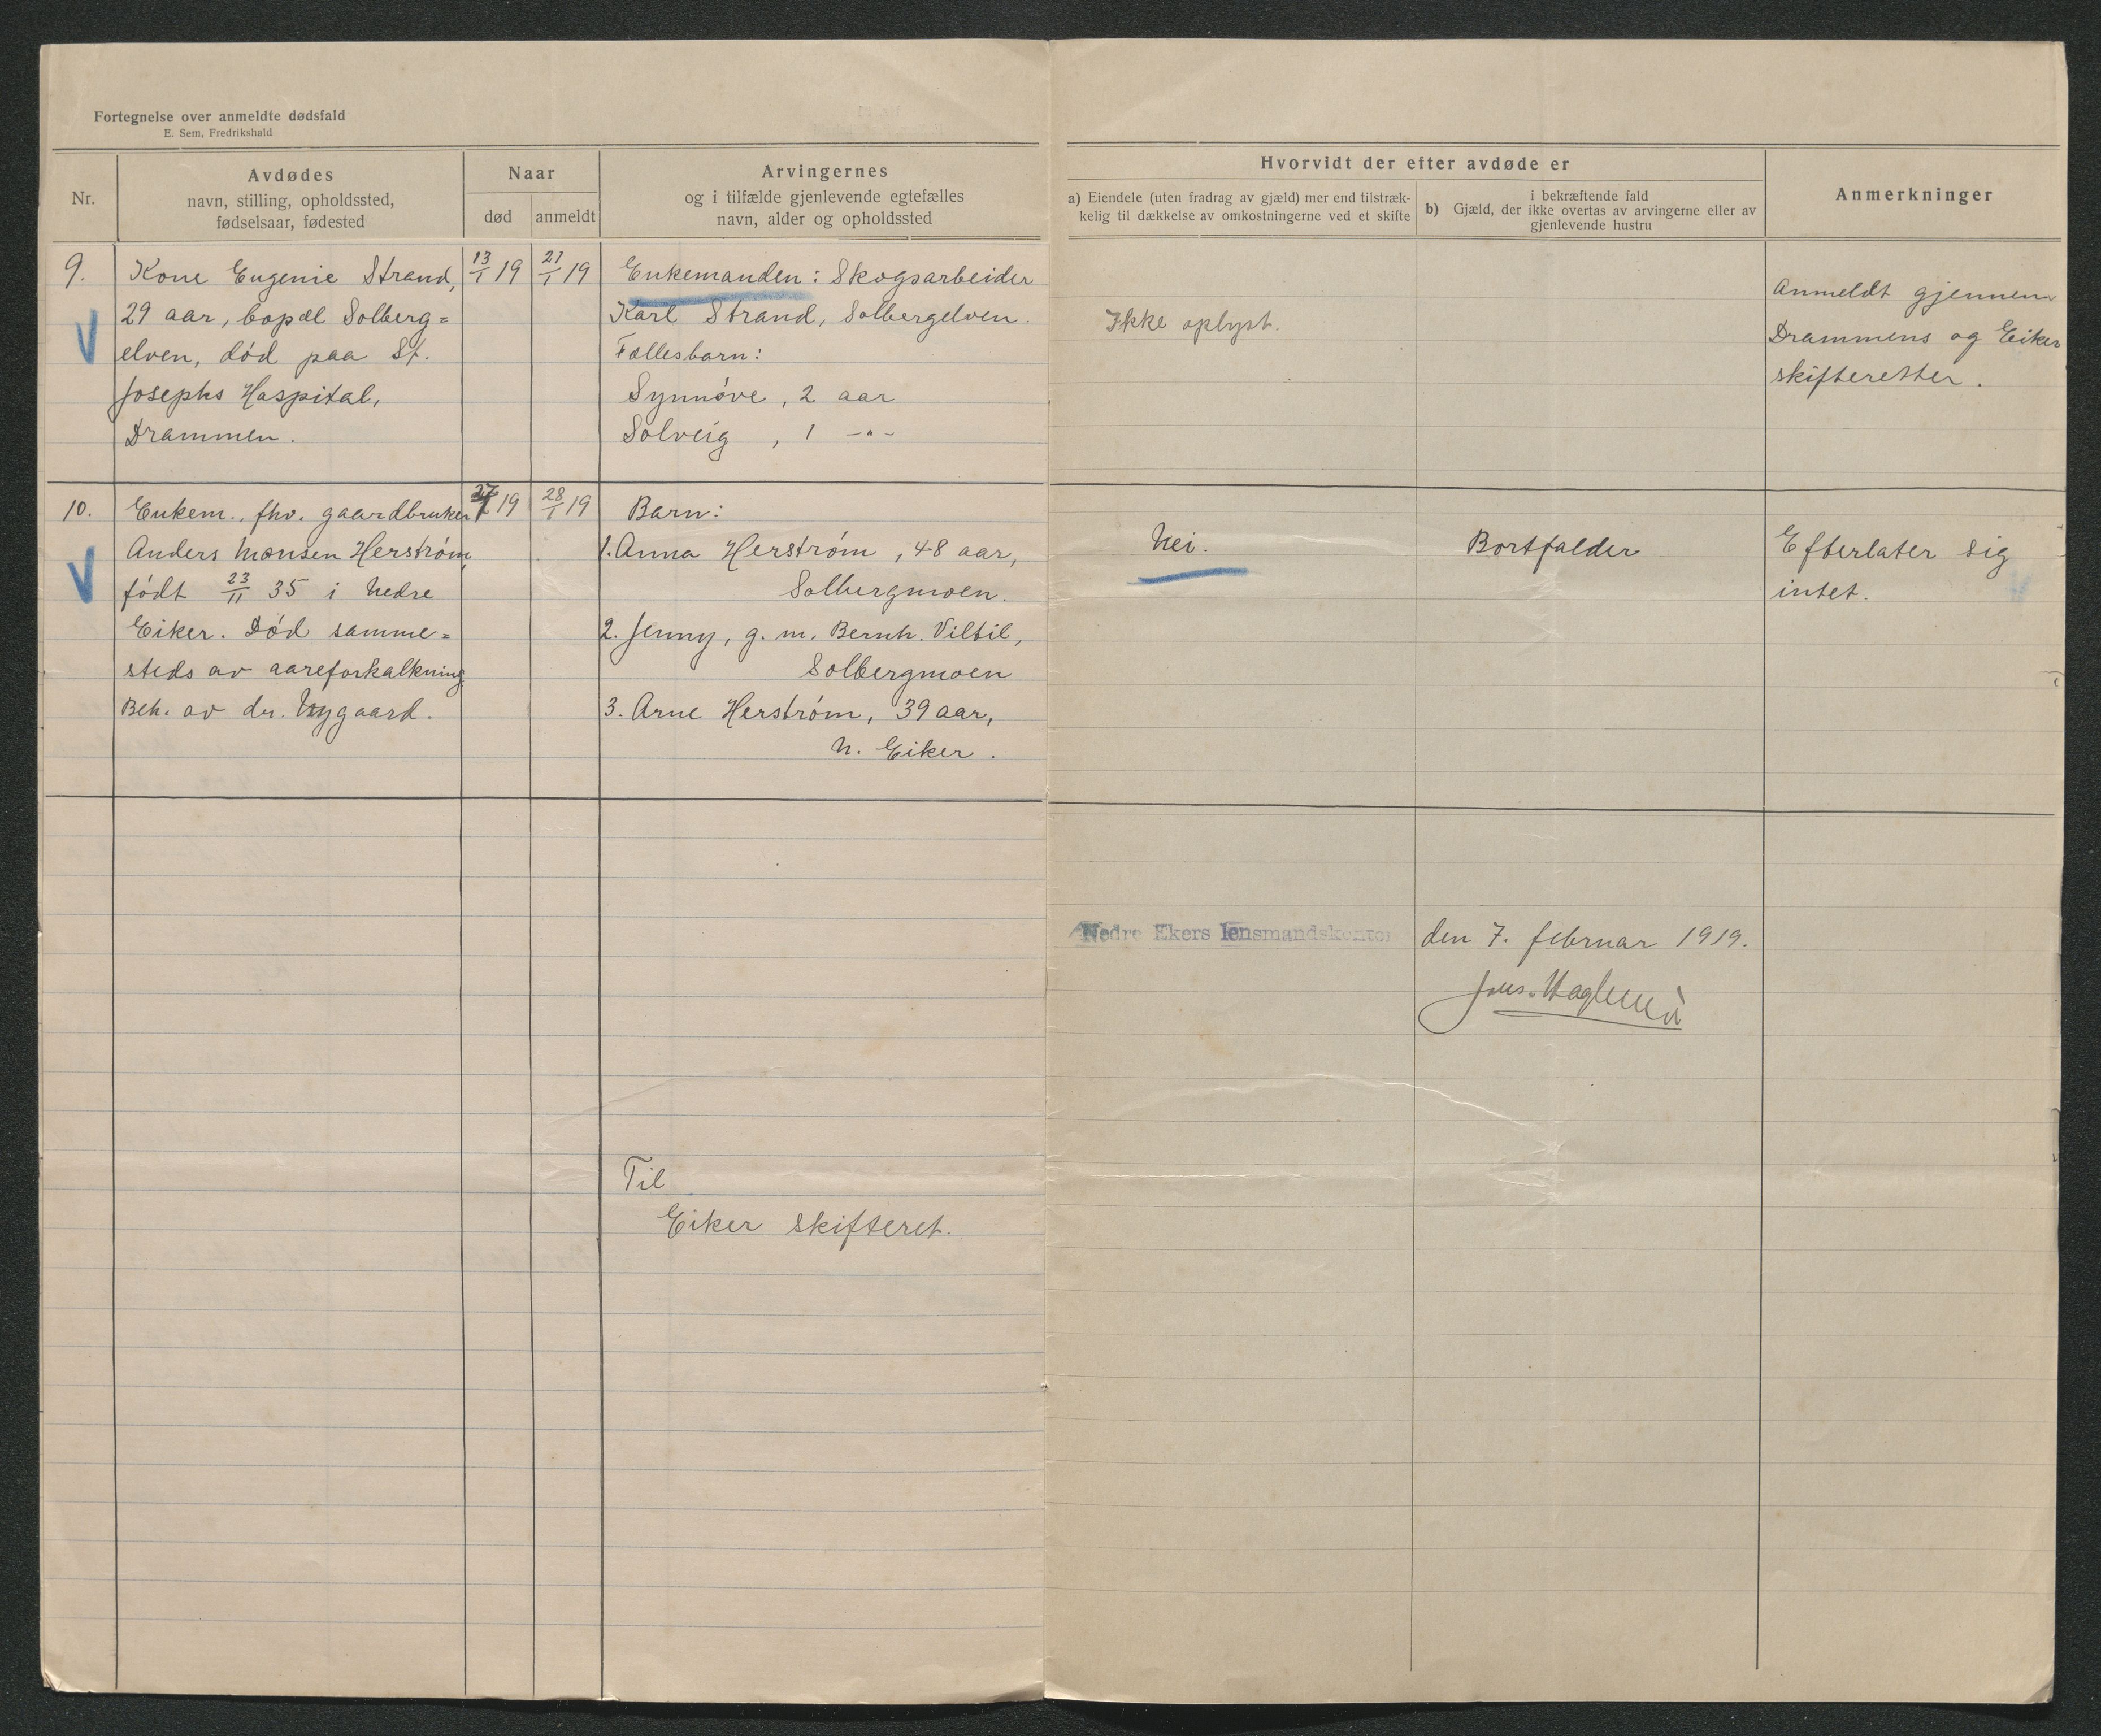 Fortegnelse over anmeldte dødsfald
E. Sem, Fredrikshald
Nr.
Avdødes
navn, stilling, opholdssted,
fødselsaar, fødested
Naar
død
anmeldt
Arvingernes
og i tilfælde gjenlevende egtefælles
navn, alder og opholdssted
Hvorvidt der efter avdøde er
a) Eiendele (uten fradrag av gjæld) mer end tilstræk-
kelig til dækkelse av omkostningerne ved et skifte
i bekræftende fald
b) Gjæld, der ikke overtas av arvingerne eller av
gjenlevende hustru
Anmerkninger
9.
Kone Eugenie Strand,
29 aar, bopæl Solberg=
elven, død paa St.
Josephs Hospital,
Drammen.
13/1 19
21/1 19
Enkemanden: Skogsarbeider
Karl Strand, Solbergelven.
Fællesbarn:
Synnøve, 2 aar
Solveig, 1 -"-
Ikke oplyst.
Anmeldt gjennem
Drammens og Eiker
skifteretter.
10.
Enkem., fhv. gaardbruker
Anders Monsen Herstrøm,
født 23/11 35 i Nedre
Eiker. Død samme=
steds av aareforkalkning
Beh. av dr. Nygaard.
27/1 19
28/1 19
Barn:
1. Anna Herstrøm, 48 aar,
Solbergmoen.
2. Jenny, g. m. Bernh. Viltil,
Solbergmoen
3. Arne Herstrøm, 39 aar,
N. Eiker.
Nei.
Bortfalder
Efterlater sig
intet.
Nedre Ekers lensmandskontor
den 7. februar 1919.
Til
Eiker skifteret.